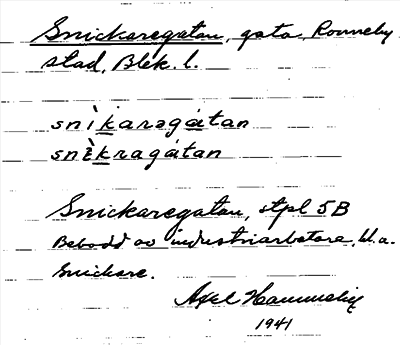 Snickaregatan, gata, Ronneby
stad, Blek. l.
snìkaregátan
snìkragátan
Snickaregatan, stpl 5B
Bebodd av industriarbetare, bl.a.
snickare.
Axel Hammelin
1941